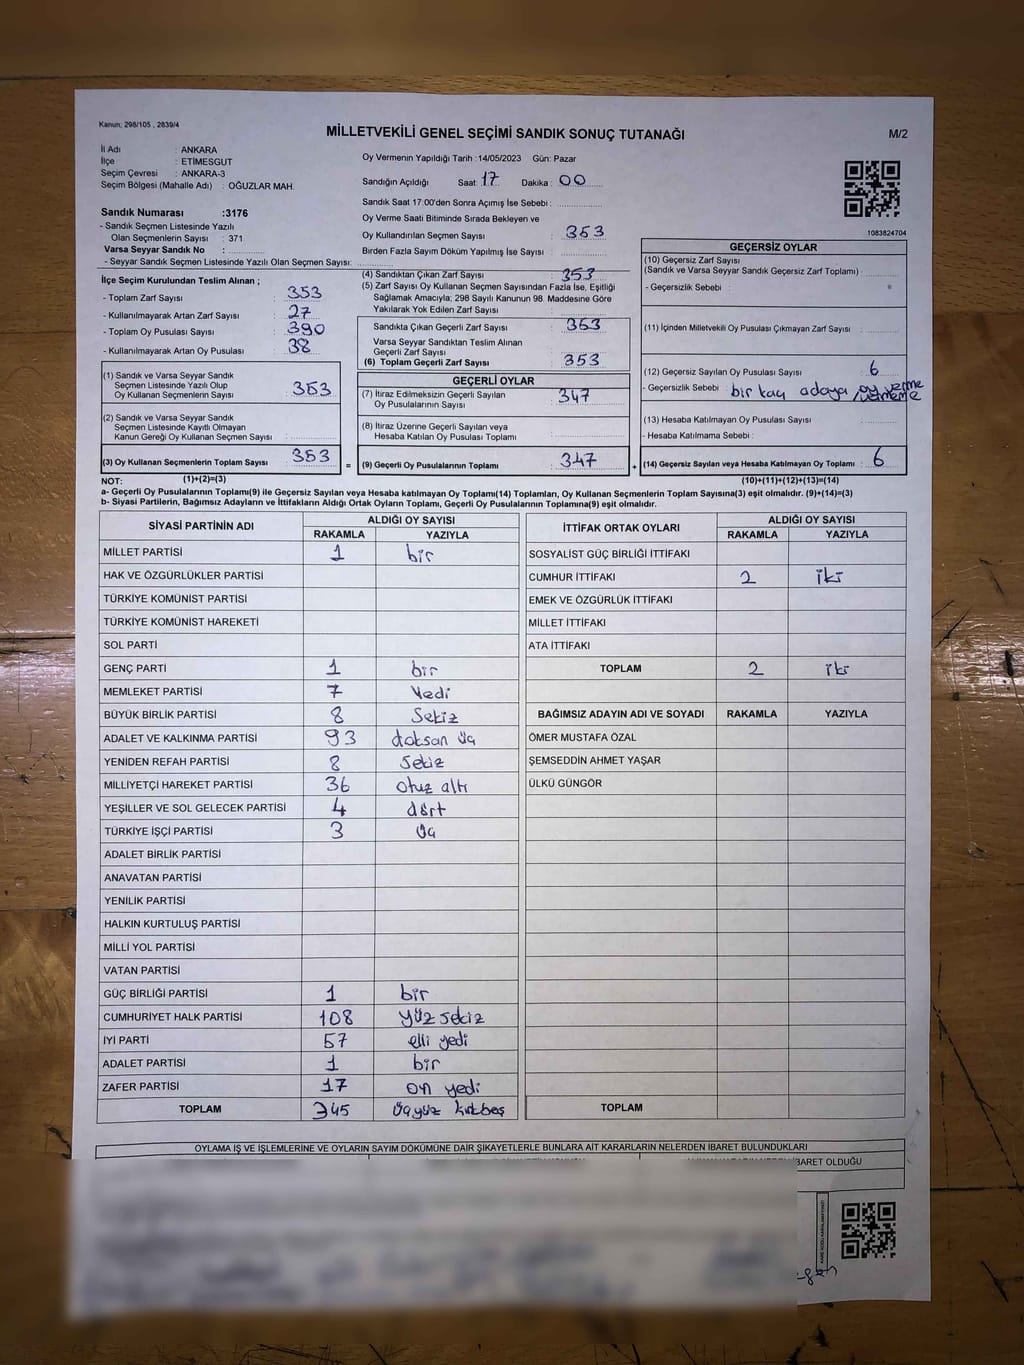 Kanun; 298/105 , 2839/4
MİLLETVEKİLİ GENEL SEÇİMİ SANDIK SONUÇ TUTANAĞI
M/2
İl Adı : ANKARA
İlçe : ETİMESGUT
Seçim Çevresi : ANKARA-3
Seçim Bölgesi (Mahalle Adı) : OĞUZLAR MAH.
Sandık Numarası :3176
- Sandık Seçmen Listesinde Yazılı
Olan Seçmenlerin Sayısı : 371
Varsa Seyyar Sandık No :
- Seyyar Sandık Seçmen Listesinde Yazılı Olan Seçmen Sayısı:
Oy Vermenin Yapıldığı Tarih :14/05/2023 Gün: Pazar
Sandığın Açıldığı Saat: 17 Dakika : 00
Sandık Saat 17:00'den Sonra Açımış İse Sebebi :
Oy Verme Saati Bitiminde Sırada Bekleyen ve
Oy Kullandırılan Seçmen Sayısı : 353
Birden Fazla Sayım Döküm Yapılmış İse Sayısı :
1083824704
İlçe Seçim Kurulundan Teslim Alınan ;
- Toplam Zarf Sayısı : 353
- Kullanılmayarak Artan Zarf Sayısı : 27
- Toplam Oy Pusulası Sayısı : 390
- Kullanılmayarak Artan Oy Pusulası : 38
(1) Sandık ve Varsa Seyyar Sandık
Seçmen Listesinde Yazılı Olup
Oy Kullanan Seçmenlerin Sayısı : 353
(2) Sandık ve Varsa Seyyar Sandık
Seçmen Listesinde Kayıtlı Olmayan
Kanun Gereği Oy Kullanan Seçmen Sayısı :
(3) Oy Kullanan Seçmenlerin Toplam Sayısı : 353
(1)+(2)=(3)
(4) Sandıktan Çıkan Zarf Sayısı : 353
(5) Zarf Sayısı Oy Kullanan Seçmen Sayısından Fazla İse, Eşitliği
Sağlamak Amacıyla; 298 Sayılı Kanunun 98. Maddesine Göre
Yakılarak Yok Edilen Zarf Sayısı :
Sandıkta Çıkan Geçerli Zarf Sayısı : 353
Varsa Seyyar Sandıktan Teslim Alınan
Geçerli Zarf Sayısı :
(6) Toplam Geçerli Zarf Sayısı : 353
GEÇERLİ OYLAR
(7) İtiraz Edilmeksizin Geçerli Sayılan
Oy Pusulalarının Sayısı : 347
(8) İtiraz Üzerine Geçerli Sayılan veya
Hesaba Katılan Oy Pusulası Toplamı :
= (9) Geçerli Oy Pusulalarının Toplamı : 347 +
GEÇERSİZ OYLAR
(10) Geçersiz Zarf Sayısı
(Sandık ve Varsa Seyyar Sandık Geçersiz Zarf Toplamı) :
- Geçersizlik Sebebi :
(11) İçinden Milletvekili Oy Pusulası Çıkmayan Zarf Sayısı :
(12) Geçersiz Sayılan Oy Pusulası Sayısı : 6
- Geçersizlik Sebebi : bir kaç adaya oy verme
(13) Hesaba Katılmayan Oy Pusulası Sayısı :
- Hesaba Katılmama Sebebi :
(14) Geçersiz Sayılan veya Hesaba Katılmayan Oy Toplamı : 6
(10)+(11)+(12)+(13)=(14)
NOT:
a- Geçerli Oy Pusulalarının Toplamı(9) ile Geçersiz Sayılan veya Hesaba katılmayan Oy Toplamı(14) Toplamları, Oy Kullanan Seçmenlerin Toplam Sayısına(3) eşit olmalıdır. (9)+(14)=(3)
b- Siyasi Partilerin, Bağımsız Adayların ve İttifakların Aldığı Ortak Oyların Toplamı, Geçerli Oy Pusulalarının Toplamına(9) eşit olmalıdır.
SİYASİ PARTİNİN ADI ALDIĞI OY SAYISI
RAKAMLA YAZIYLA
MİLLET PARTİSİ 1 bir
HAK VE ÖZGÜRLÜKLER PARTİSİ
TÜRKİYE KOMÜNİST PARTİSİ
TÜRKİYE KOMÜNİST HAREKETİ
SOL PARTİ
GENÇ PARTİ 1 bir
MEMLEKET PARTİSİ 7 Yedi
BÜYÜK BİRLİK PARTİSİ 8 Sekiz
ADALET VE KALKINMA PARTİSİ 93 doksan üç
YENİDEN REFAH PARTİSİ 8 sekiz
MİLLİYETÇİ HAREKET PARTİSİ 36 otuz altı
YEŞİLLER VE SOL GELECEK PARTİSİ 4 dört
TÜRKİYE İŞÇİ PARTİSİ 3 üç
ADALET BİRLİK PARTİSİ
ANAVATAN PARTİSİ
YENİLİK PARTİSİ
HALKIN KURTULUŞ PARTİSİ
MİLLİ YOL PARTİSİ
VATAN PARTİSİ
GÜÇ BİRLİĞİ PARTİSİ 1 bir
CUMHURİYET HALK PARTİSİ 108 yüz sekiz
İYİ PARTİ 57 elli yedi
ADALET PARTİSİ 1 bir
ZAFER PARTİSİ 17 on yedi
TOPLAM 345 üçyüz kırkbeş
İTTİFAK ORTAK OYLARI ALDIĞI OY SAYISI
RAKAMLA YAZIYLA
SOSYALİST GÜÇ BİRLİĞİ İTTİFAKI
CUMHUR İTTİFAKI 2 iki
EMEK VE ÖZGÜRLÜK İTTİFAKI
MİLLET İTTİFAKI
ATA İTTİFAKI
TOPLAM 2 iki
BAĞIMSIZ ADAYIN ADI VE SOYADI RAKAMLA YAZIYLA
ÖMER MUSTAFA ÖZAL
ŞEMSEDDİN AHMET YAŞAR
ÜLKÜ GÜNGÖR
TOPLAM
OYLAMA İŞ VE İŞLEMLERİNE VE OYLARIN SAYIM DÖKÜMÜNE DAİR ŞİKAYETLERLE BUNLARA AİT KARARLARIN NELERDEN İBARET BULUNDUKLARI
İBARET OLDUĞU